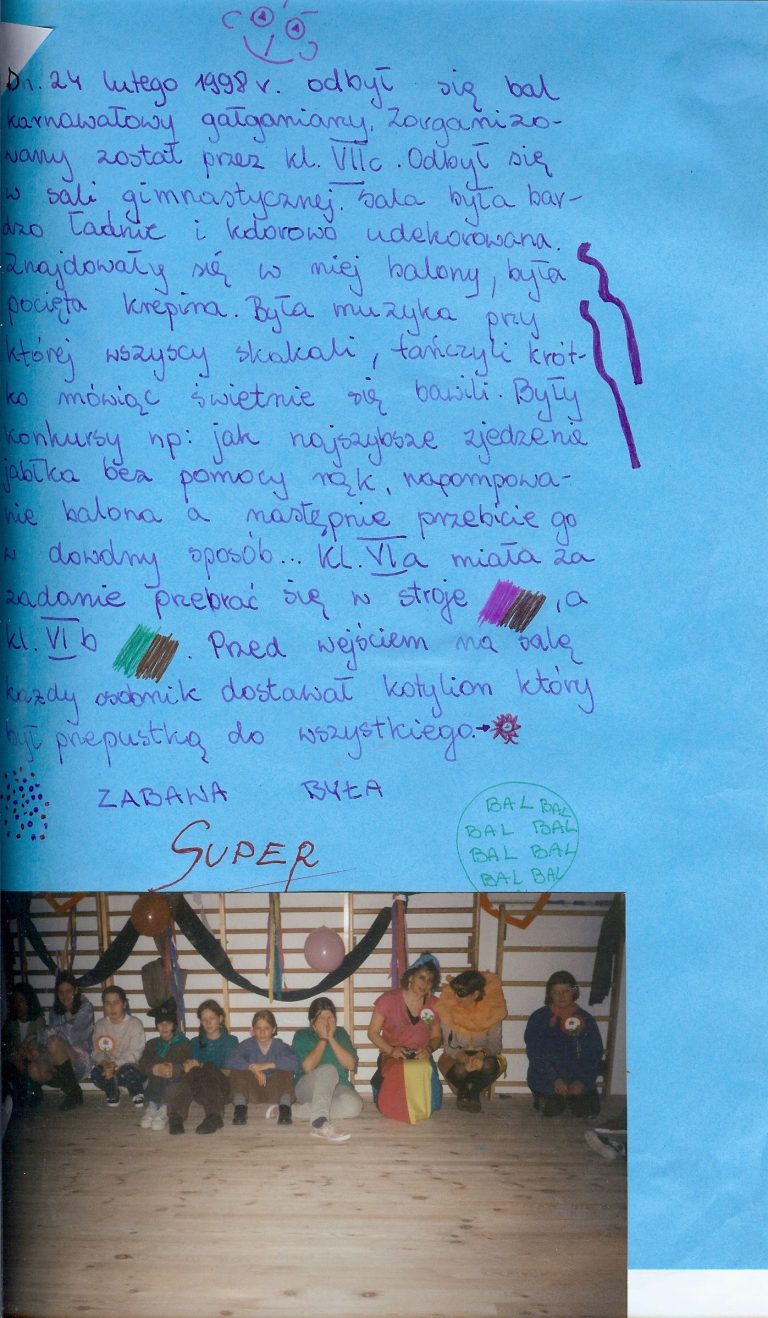 Dn. 24 lutego 1998 r. odbył się bal
karnawałowy gałganiany. Zorganizo-
wany został przez kl. VIIc. Odbył się
w sali gimnastycznej. Sala była bar-
dzo ładnie i kolorowo udekorowana.
Znajdowały się w niej balony, była
pocięta krepina. Była muzyka przy
której wszyscy skakali, tańczyli krót-
ko mówiąc świetnie się bawili. Były
konkursy np: jak najszybsze zjedzenie
jabłka bez pomocy rąk, napompowa-
nie balona a następnie przebicie go
w dowolny sposób... Kl. VIa miała za
zadanie przebrać się w stroje , a
kl. VIb . Przed wejściem na salę
każdy osobnik dostawał kotylion który
był przepustką do wszystkiego.→
ZABAWA BYŁA
SUPER
BAL BAL
BAL BAL
BAL BAL
BAL BAL